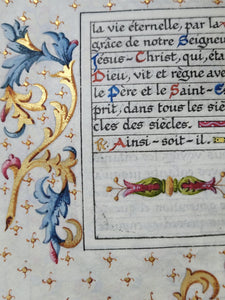 la vie éternelle, par la
grâce de notre Seigneu
Jésus-Christ, qui, éta
Dieu, vit et règne avec
le Père et le Saint-Es
prit, dans tous les siè
cles des siècles.
℟. Ainsi-soit-il.